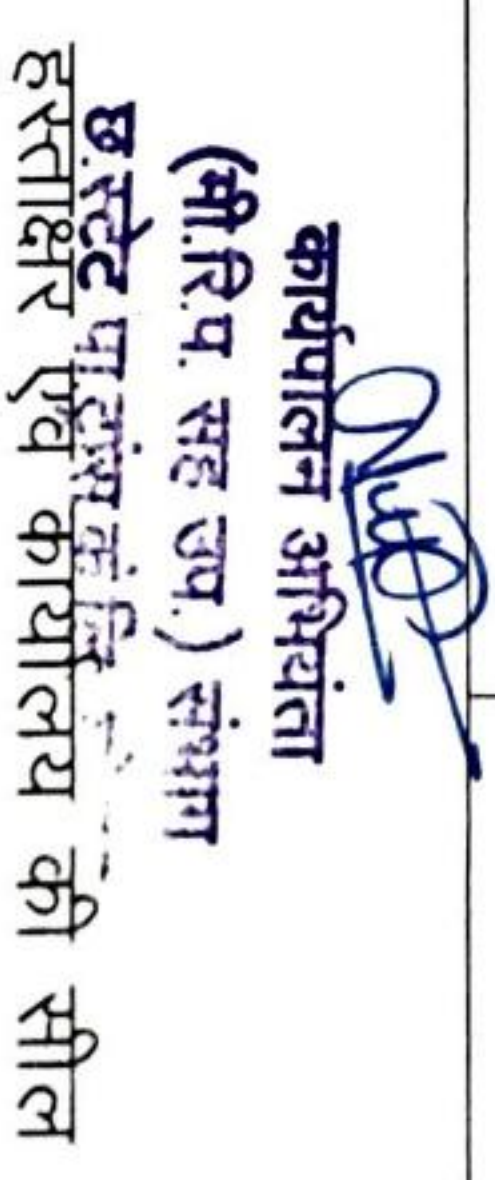 कार्यपालन अभियंता
(मी.रि.प. सह उप.) संभाग
छ.स्टेट पा.ट्रांस.कं.लि.
हस्ताक्षर एवं कार्यालय की सील